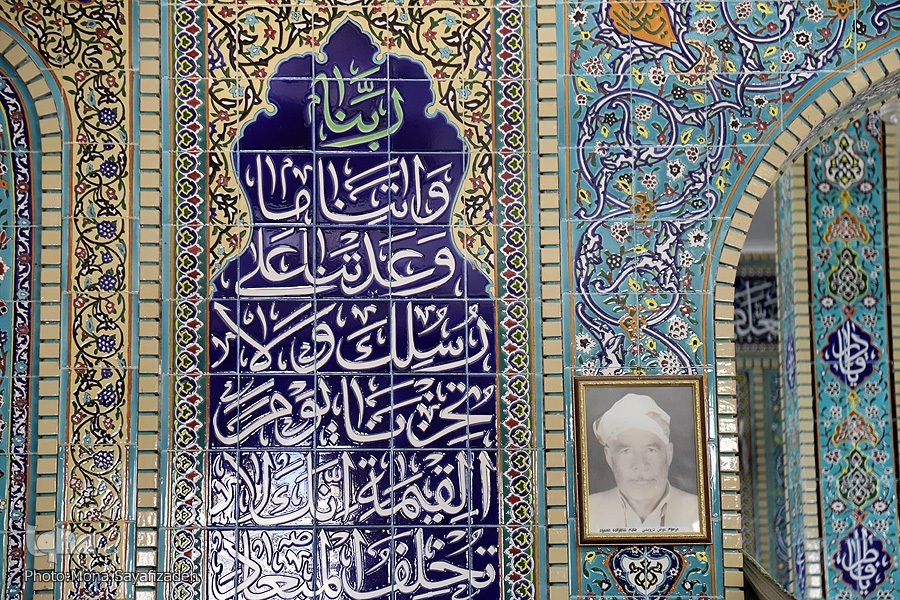 ربنا
واتنا ما
وعدتنا علی
رسلک ولا
تخزنا یوم
القیمة انک لا
تخلف المیعاد
Photo:Mona Sayafizadeh